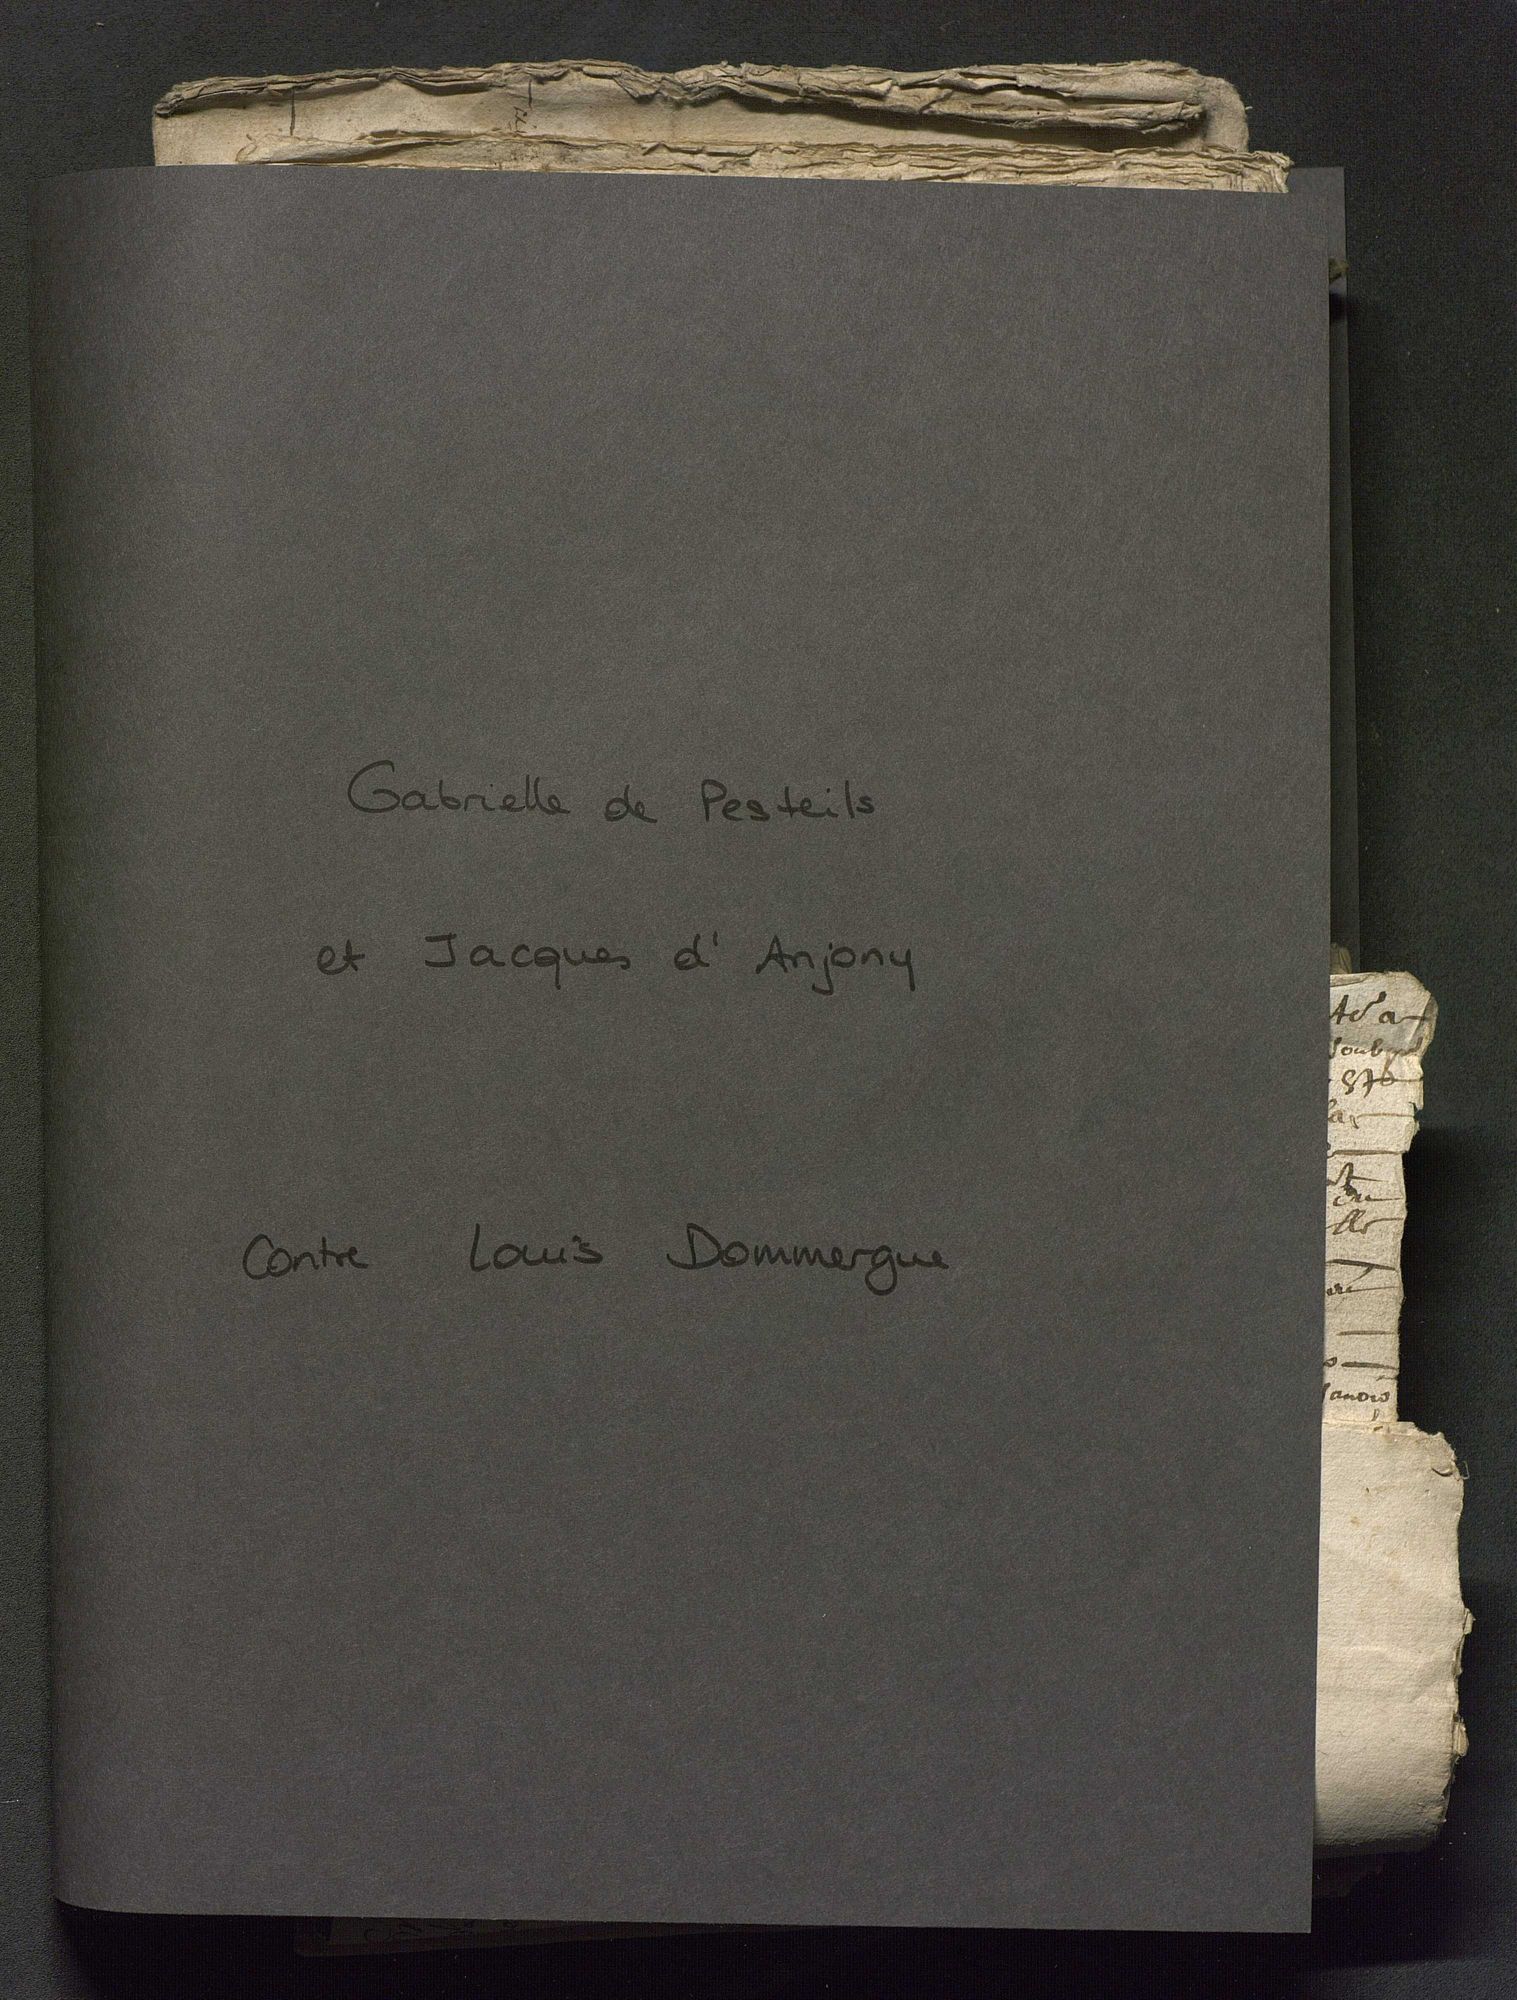 Gabrielle de Pesteils
et Jacques d'Anjony
Contre Louis Dommergue